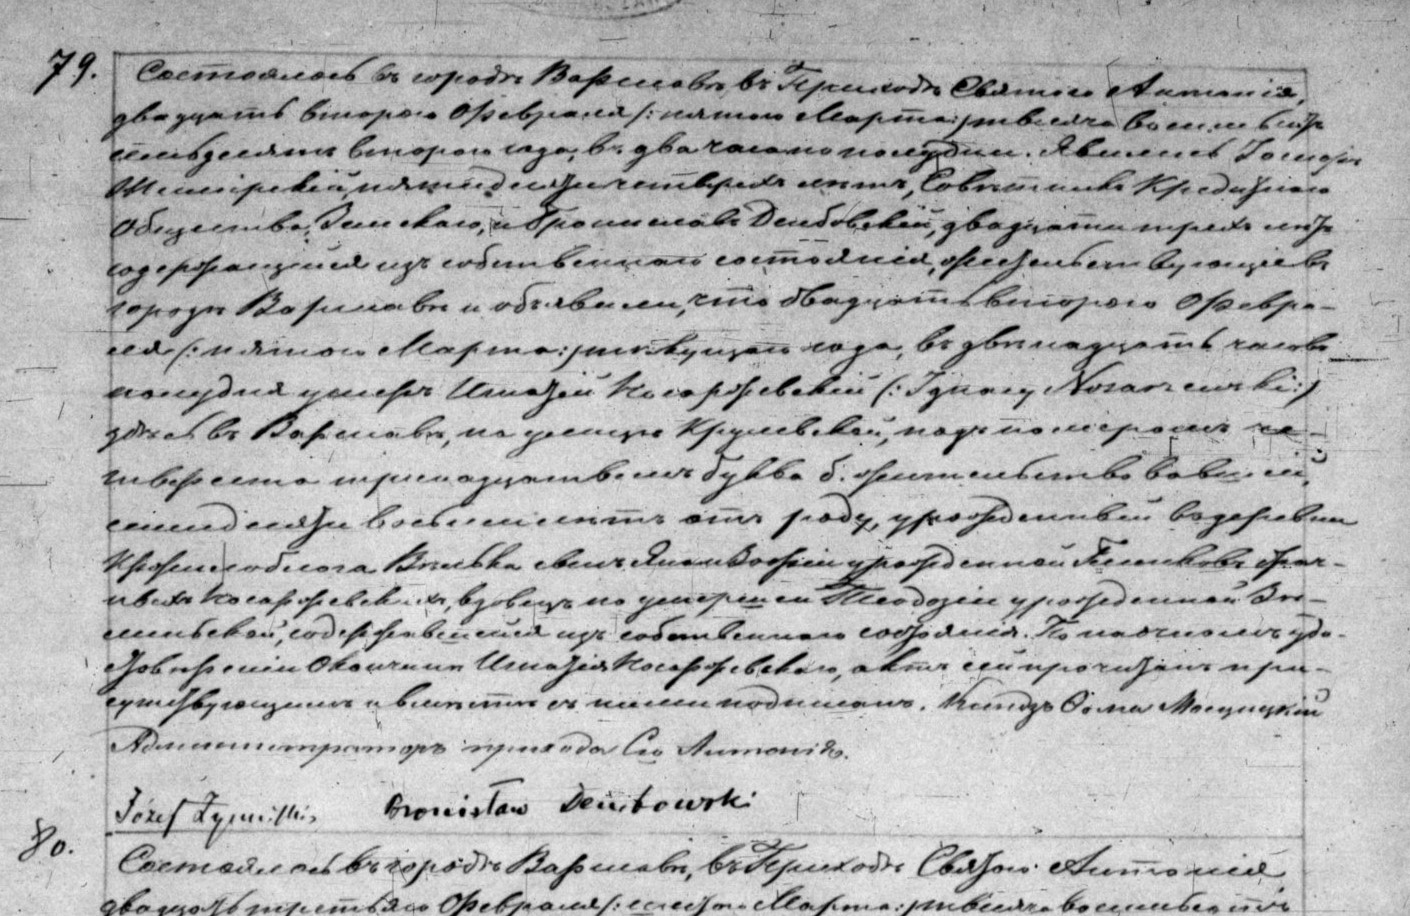 79.
Состоялось въ городѣ Варшавѣ въ Приходѣ Святого Антонія,
двадцать второго Февраля /: пятого Марта :/ тысяча восемьсотъ
семьдесятъ второго года, въ два часа по полудни. Явились Іосифъ
пятидесяти четырехъ лѣтъ, Совѣтникъ Кредитнаго
Общества Земскаго, и Брониславъ Дембовскій, двадцати трехъ лѣтъ
содержащійся изъ собственнаго состоянія, жительствующіе въ
городѣ Варшавѣ и объявили, что двадцать второго Февра-
ля /: пятого Марта :/ текущаго года, въ двѣнадцать часовъ
полудня умеръ Игнатій Косаржевскій (:Ignacy :)
здѣсь въ Варшавѣ, на улицѣ Крулевской, подъ номеромъ че-
тыреста тринадцатымъ буква б. жительствовавшій,
семидесяти восьми лѣтъ отъ роду, урожденный въ деревни
Вулька сынъ Яна и Зофіи урожденной
Косаржевскихъ, вдовецъ по умершей Теодозіи урожденной
содержавшійся изъ собственнаго состоянія. По наочномъ удо-
стовѣреніи о кончинѣ Игнатія Косаржевскаго, актъ сей прочитанъ при-
сутствующимъ и вмѣстѣ съ ними подписанъ. Ксендзъ Ѳома
Администраторъ прихода Св Антонія.
Józef Bronisław Dembowski
80.
Состоялось въ городѣ Варшавѣ, въ Приходѣ Святого Антонія
двадцать третьяго Февраля /: шестого Марта :/ тысяча восемьсотъ